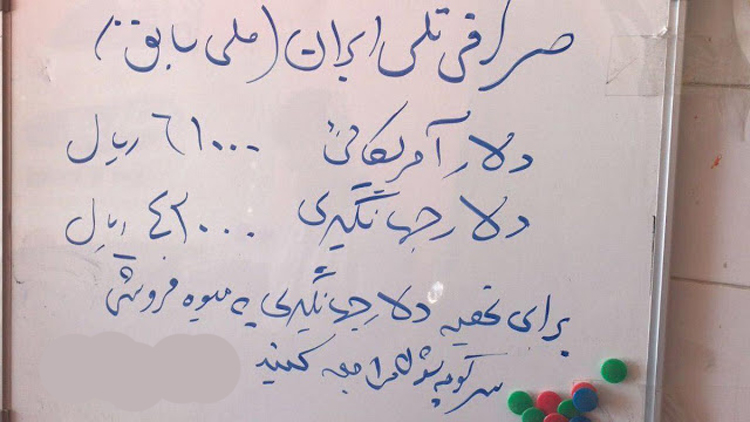 صرافی تلی ایران (ملی سابق)
دلار آمریکائی ٦١٠٠٠ ریال
دلار جهانگیری ٤٢٠٠٠ ریال
برای تهیه دلار جهانگیری به میوه فروشی
سر کوچه مراجعه کنید